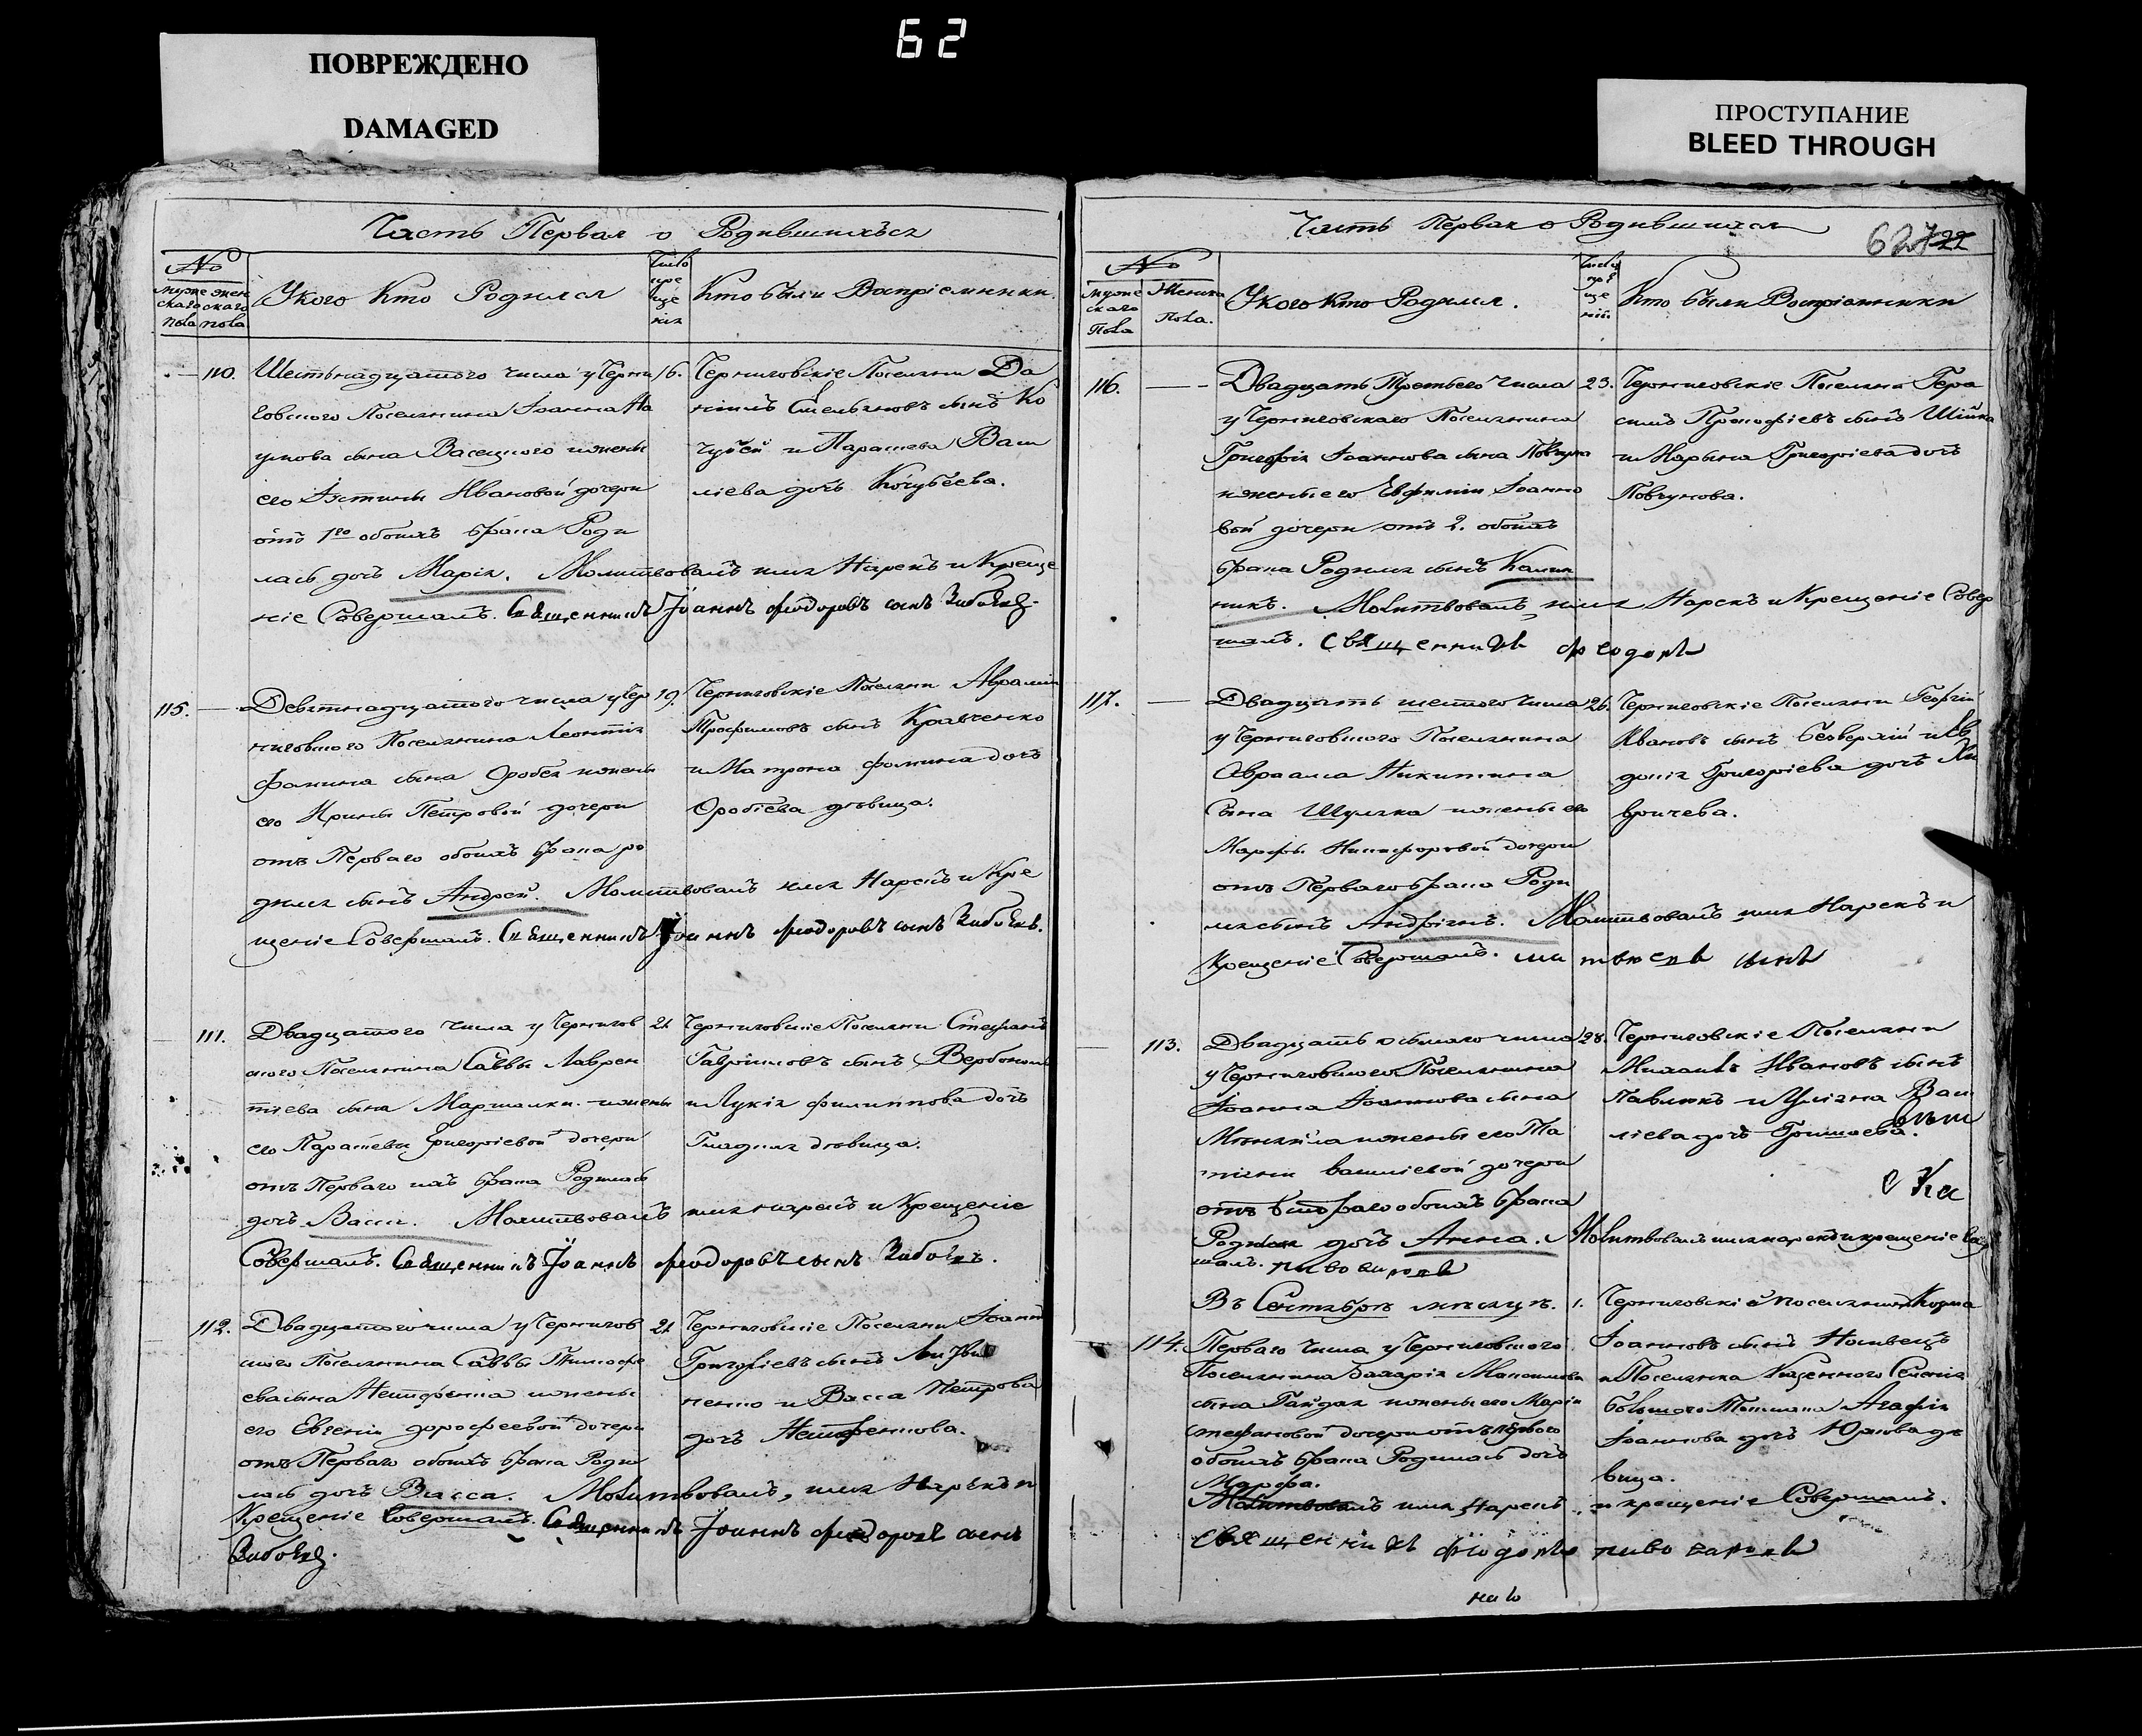 62
ПОВРЕЖДЕНО
DAMAGED
ПРОСТУПАНИЕ
BLEED THROUGH
Часть Первая о Родившихъся
№
мужескаго пола
женскаго пола
У кого Кто Родился
Число крещения
Кто были Воспріемники.
110. Шестьнадцатого числа у Черни
говского Поселянина Іоанна На
умова сына Васецкого и жены
его Іустины Ивановой дочери
отъ 1го обоихъ брака Роди
лась дочь Марія. Молитвовалъ имя Нарекъ и Креще
ніе Совершалъ. Священникъ Іоаннъ Феодоровъ сынъ
16. Черниговскіе Поселяни Да
ніилъ Емельяновъ сынъ Ко
чубей и Параскева Васи
ліева дочь Кочубеева.
115. Девятнадцатого числа у Чер
ниговского Поселянина Леонтія
Фомина сына Оробея и жены
его Ирины Петровой дочери
отъ Перваго обоихъ брака ро
дился сынъ Андрей. Молитвовалъ имя Нарекъ и Кре
щеніе Совершалъ. Священникъ Іоаннъ Феодоровъ сынъ
19. Черниговскіе Поселяни Авраамъ
Трофимовъ сынъ Кравченко
и Матрона Фомина дочь
Оробіева дѣвица.
111. Двадцатого числа у Чернигов
ского Поселянина Саввы Лаврен
тіева сына Маршалки и жены
его Параскевы Григоріевой дочери
отъ Перваго ихъ брака Родилась
дочь Васса. Молитвовалъ имя нарекъ и Крещеніе
Совершалъ. Священникъ Іоаннъ Феодоровъ сынъ
21. Черниговскіе Поселяни Стефанъ
Гавриловъ сынъ
и Лукія Филиппова дочь
Гладкая дѣвица.
112. Двадцатого числа у Чернигов
ского Поселянина Саввы Тимофе
ева сына и жены
его Евгеніи Дорофеевой дочери
отъ Перваго обоихъ брака Роди
лась дочь Васса. Молитвовалъ, имя Нарекъ и
Крещеніе Совершалъ. Священникъ Іоаннъ Феодоровъ сынъ
21. Черниговскіе Поселяни Іоаннъ
Григоріевъ сынъ
и Васса Петрова
дочь
Часть Первая о Родившихся
627
22
№
мужескаго Пола
Женска Пола.
У кого Кто Родился.
Число крещеній
Кто были Воспріемники
116. Двадцать Третьего Числа
у Черниговскаго Поселянина
Григорія Іоаннова сына
и жены его Евфиміи Іоанно
вой дочери отъ 2. обоихъ
брака Родился сынъ Калин
никъ. Молитвовалъ, имя Нарекъ и Крещеніе Совер
шалъ. Священникъ Феодоръ
23. Черниговскіе Поселяни Гера
симъ Прокофіевъ сынъ Шійка
и Марына Григоріева дочь
Повчунова.
117. Двадцать шестого Числа
у Черниговского Поселянина
Авраама Никитина
Сына Шуляка и жены его
Марфы Никифоровой дочери
отъ Перваго брака Роди
лся сынъ Андріанъ. Молитвовалъ имя Нарекъ и
Крещеніе Совершалъ. сынъ
26. Черниговскіе Поселяни Георгій
Ивановъ сынъ и Ев
докія Григоріева дочь Ки
вричева.
113. Двадцать осьмаго числа
у Черниговского Поселянина
Іоанна Іоаннова сына
и жены его Та
тіаны Василіевой дочери
отъ втораго обоихъ брака
Родилась дочь Анна. Молитвовалъ имя нарекъ и крещеніе Совер
шалъ. Пивоваровъ
28. Черниговскіе Поселяни
Михаилъ Ивановъ сынъ
Павлюкъ и Уліана Васи
ліева дочь
Въ Сентябрѣ мѣсяцѣ.
114. Перваго Числа у Черниговского
Поселянина Захарія
сына Гайдая и жены его Маріи
Стефановой дочери отъ перваго
обоихъ брака Родилась дочь
Марфа.
Молитвовалъ имя Нарекъ и крещеніе Совершалъ.
Священникъ Феодоръ Пивоваровъ
1. Черниговскіе поселяни Козма
Іоанновъ сынъ
и Поселянка Казенного Селенія
Большого Токмака Агафія
Іоаннова дочь Юркова дѣ
вица.